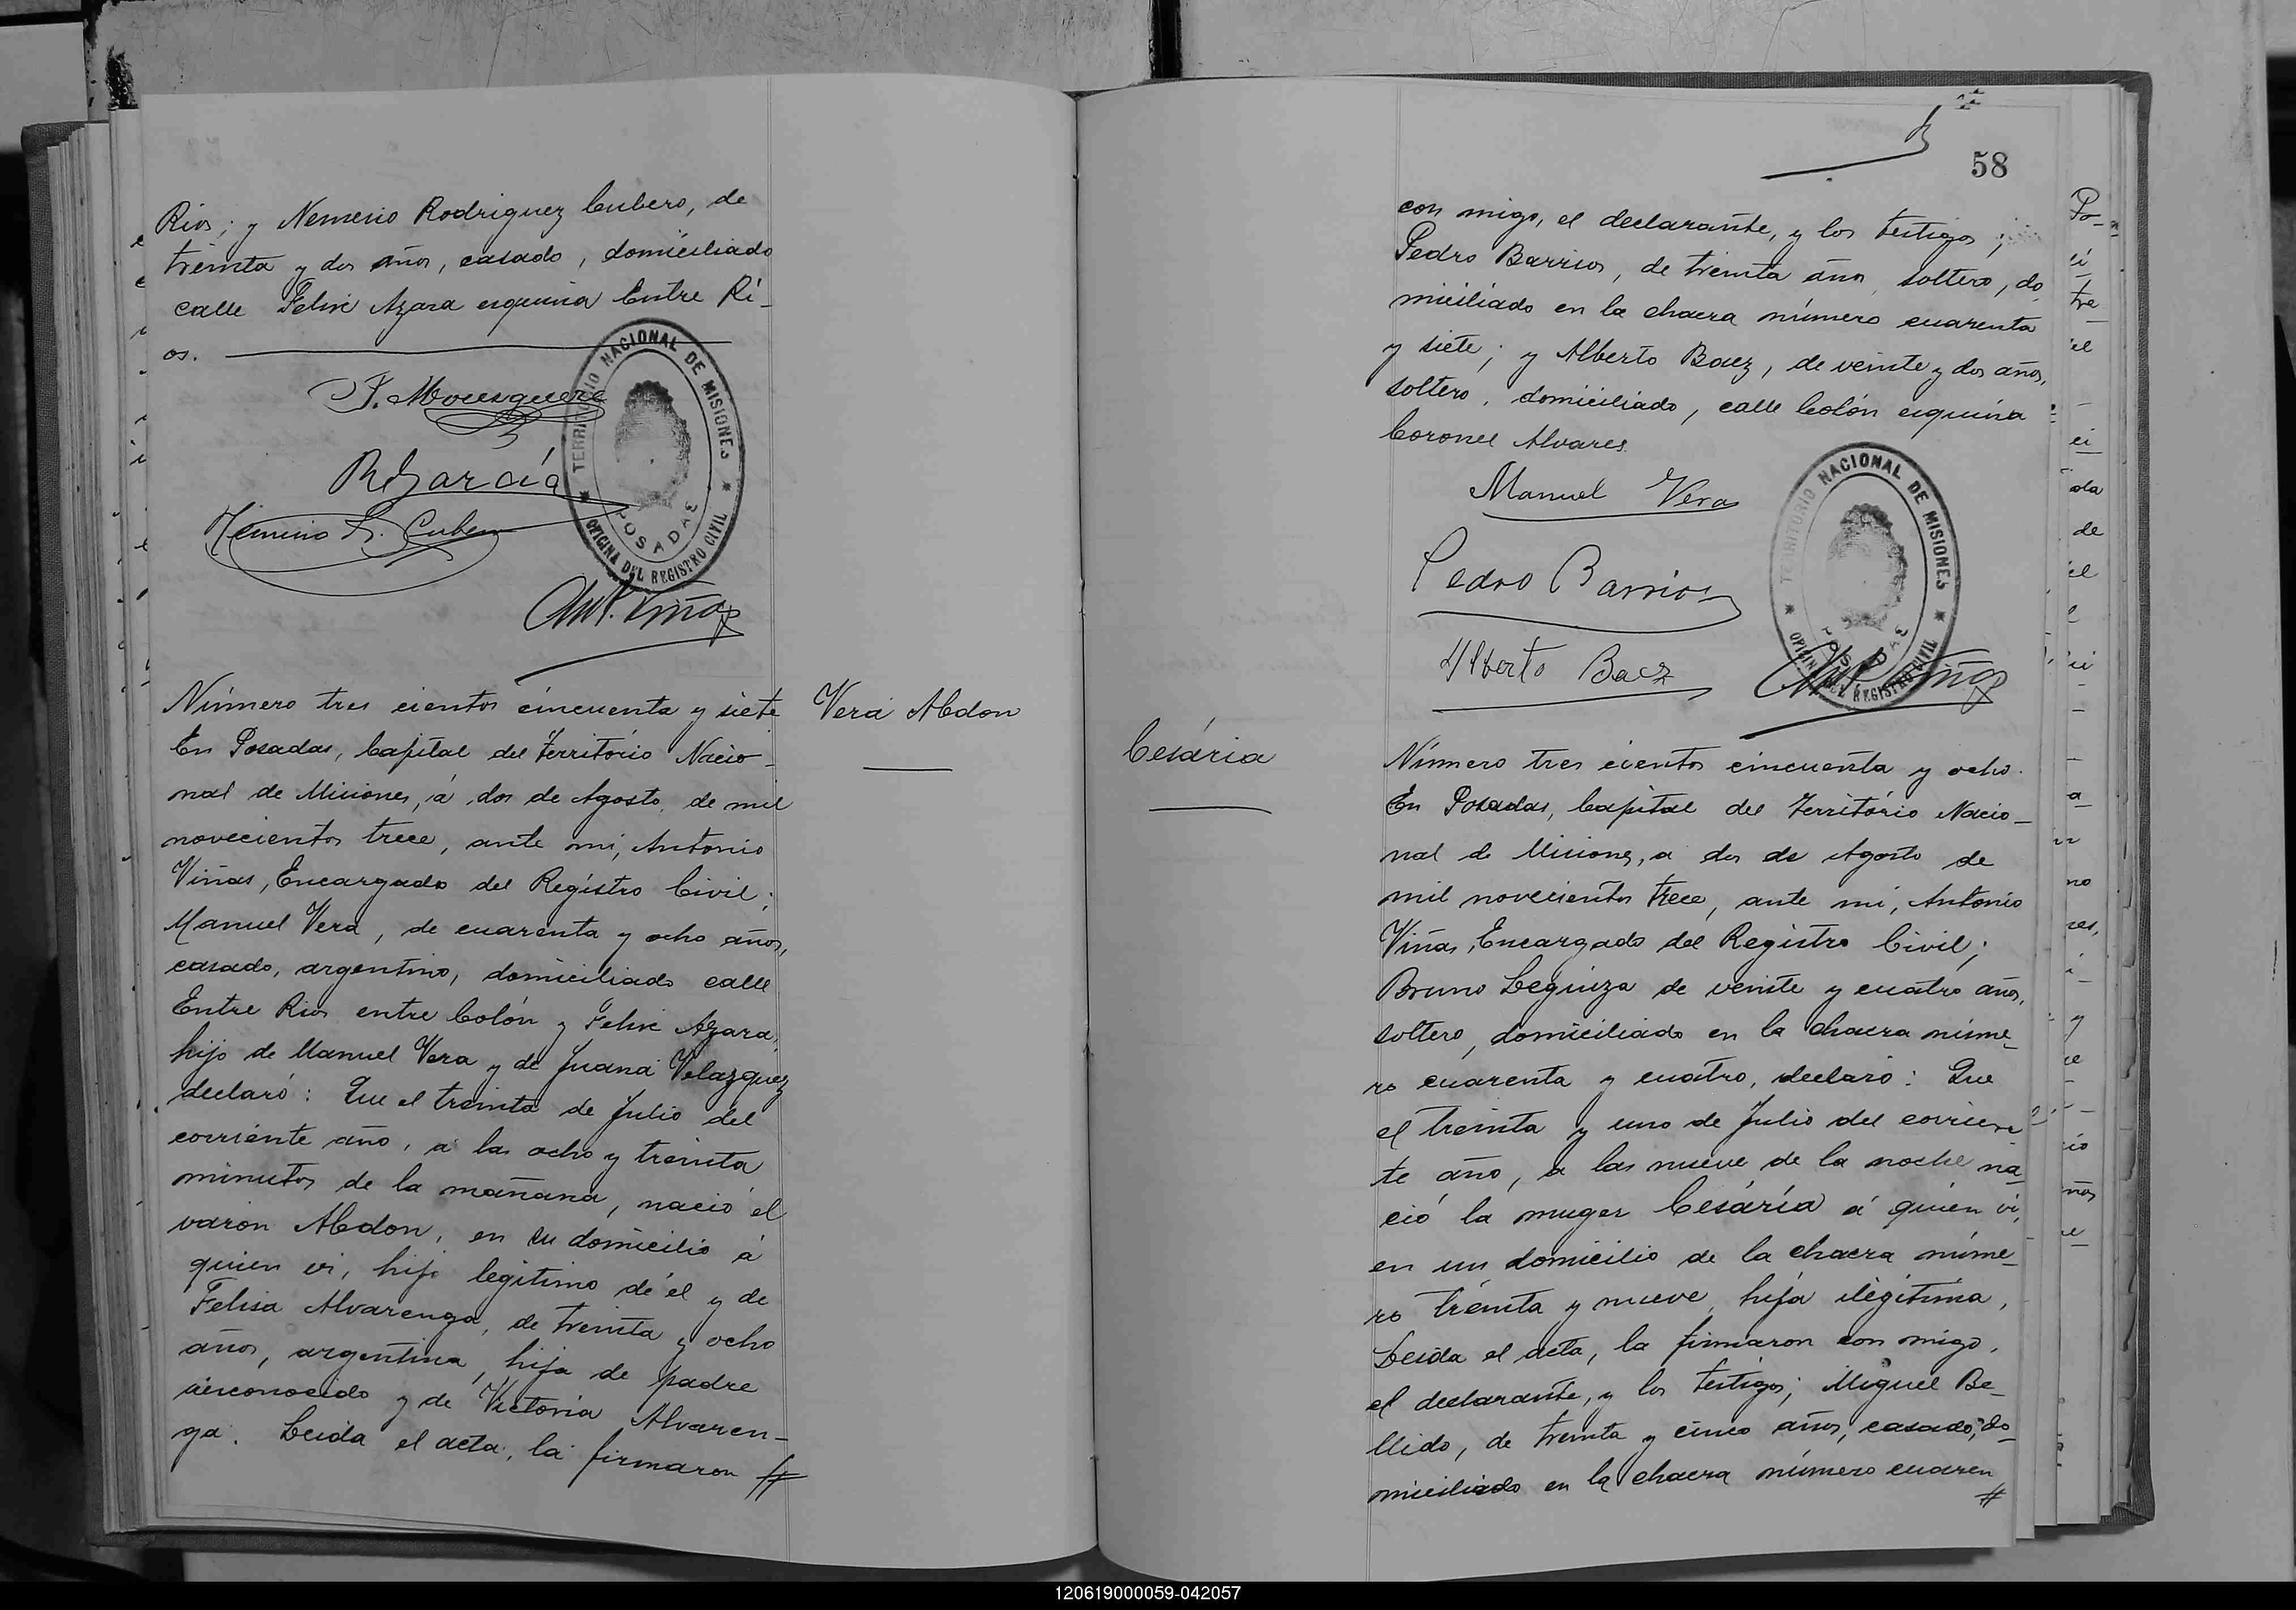 Rios; y Nemesio Rodriguez Cubero, de
treinta y dos años, casado, domiciliado
calle Felix Azara esquina Entre Ri-
os.
F. Mousquere
R García
Nemesio R. Cubero
Ant. Viñas
TERRITORIO NACIONAL DE MISIONES
POSADAS
OFICINA DEL REGISTRO CIVIL
Número tres cientos cincuenta y siete
En Posadas, Capital del Território Nacio-
nal de Misiones, á dos de Agosto de mil
novecientos trece, ante mi, Antonio
Viñas, Encargado del Registro Civil;
Manuel Vera, de cuarenta y ocho años,
casado, argentino, domiciliado calle
Entre Rios entre Colón y Felix Azara,
hijo de Manuel Vera y de Juana Velazquez
declaró: Que el treinta de Julio del
corriente año, a las ocho y treinta
minutos de la mañana, nació el
varon Abdon, en su domicilio á
quien vi, hijo legítimo de él y de
Felisa Alvarenga, de treinta y ocho
años, argentina, hija de padre
desconocido y de Victoria Alvaren-
ga. Leida el acta, la firmaron #
Vera Abdon
58
con migo, el declarante, y los testigos;
Pedro Barrios, de treinta años soltero, do
miciliado en la chacra número cuarenta
y siete; y Alberto Baez, de veinte y dos años,
soltero, domiciliado, calle Colón esquina
Coronel Alvares.
Manuel Vera
Pedro Barrios
Alberto Baez
Ant. Viñas
TERRITORIO NACIONAL DE MISIONES
POSADAS
OFICINA DEL REGISTRO CIVIL
Cesária
Número tres cientos cincuenta y ocho.
En Posadas, Capital del Território Nacio-
nal de Misiones, a dos de Agosto de
mil novecientos trece, ante mi, Antonio
Viñas, Encargado del Registro Civil;
Bruno Leguiza de veinte y cuatro años,
soltero, domiciliado en la chacra núme-
ro cuarenta y cuatro, declaró: Que
el treinta y uno de Julio del corrien-
te año, a las nueve de la noche na-
ció la muger Cesária á quien vi,
en un domicilio de la chacra núme-
ro treinta y nueve, hija ilegítima,
Leida el acta, la firmaron con migo,
el declarante, y los testigos; Miguel Be-
llido, de treinta y cinco años, casado, do-
miciliado en la chacra número cuaren
#
120619000059-042057